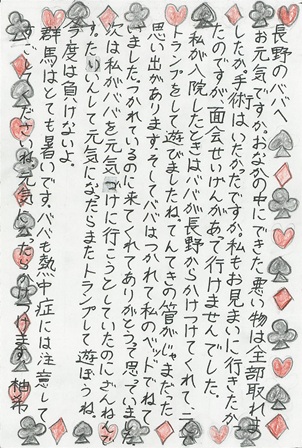 長野のババへ
お元気ですか。おなかの中にできた悪い物は全部取れま
したか。手術はいたかったですか。私もお見まいに行きたか
ったのですが、面会せいげんがあって行けませんでした。
私が入院したときはババが長野からかけつけてくれて、二人
トランプをして遊びましたね。てんてきの管がじゃまだった
思い出があります。そしてババはつかれて私のベッドでねて
いました。つかれているのに来てくれてありがとうって思っていました
次は私がババを元気づけに行こうとしていたのにざんねんで
す。たいいんして元気になったらまたトランプして遊ぼうね。
今度は負けないよ。
群馬はとても暑いです。ババも熱中症には注意して
すごしてくださいね。元気になったらかけます。柚希